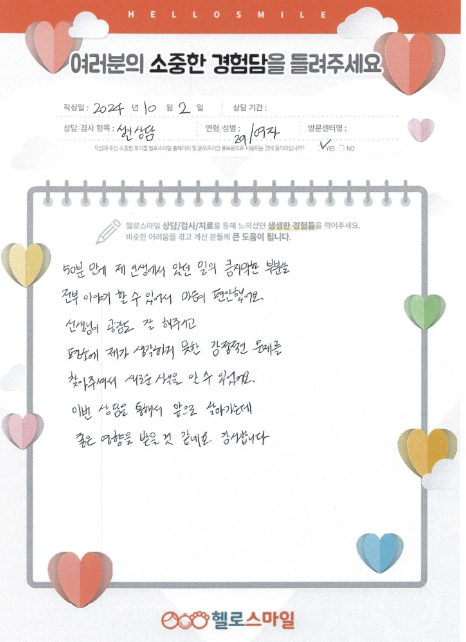 HELLOSMILE
여러분의 소중한 경험담을 들려주세요
작성일 : 2024 년 10 월 2 일 상담 기간 :
상담/검사 항목 : 심리상담 연령/성별 : 29/여자 방문센터명 :
작성해 주신 소중한 후기를 헬로스마일 홈페이지 및 온/오프라인 홍보용으로 사용하는 것에 동의하십니까? YES NO
헬로스마일 상담/검사/치료를 통해 느끼셨던 생생한 경험들을 적어주세요.
비슷한 어려움을 겪고 계신 분들께 큰 도움이 됩니다.
50분 만에 제 인생에서 있었던 일의 큼지막한 부분을
전부 이야기 할 수 있어서 마음이 편안했어요.
선생님이 공감도 잘 해주시고
평소에 제가 생각하지 못한 감정적인 문제를
찾아주셔서 새로운 사실을 알 수 있었어요.
이번 상담을 통해서 앞으로 살아가는데
좋은 영향을 받을 것 같네요. 감사합니다
헬로스마일